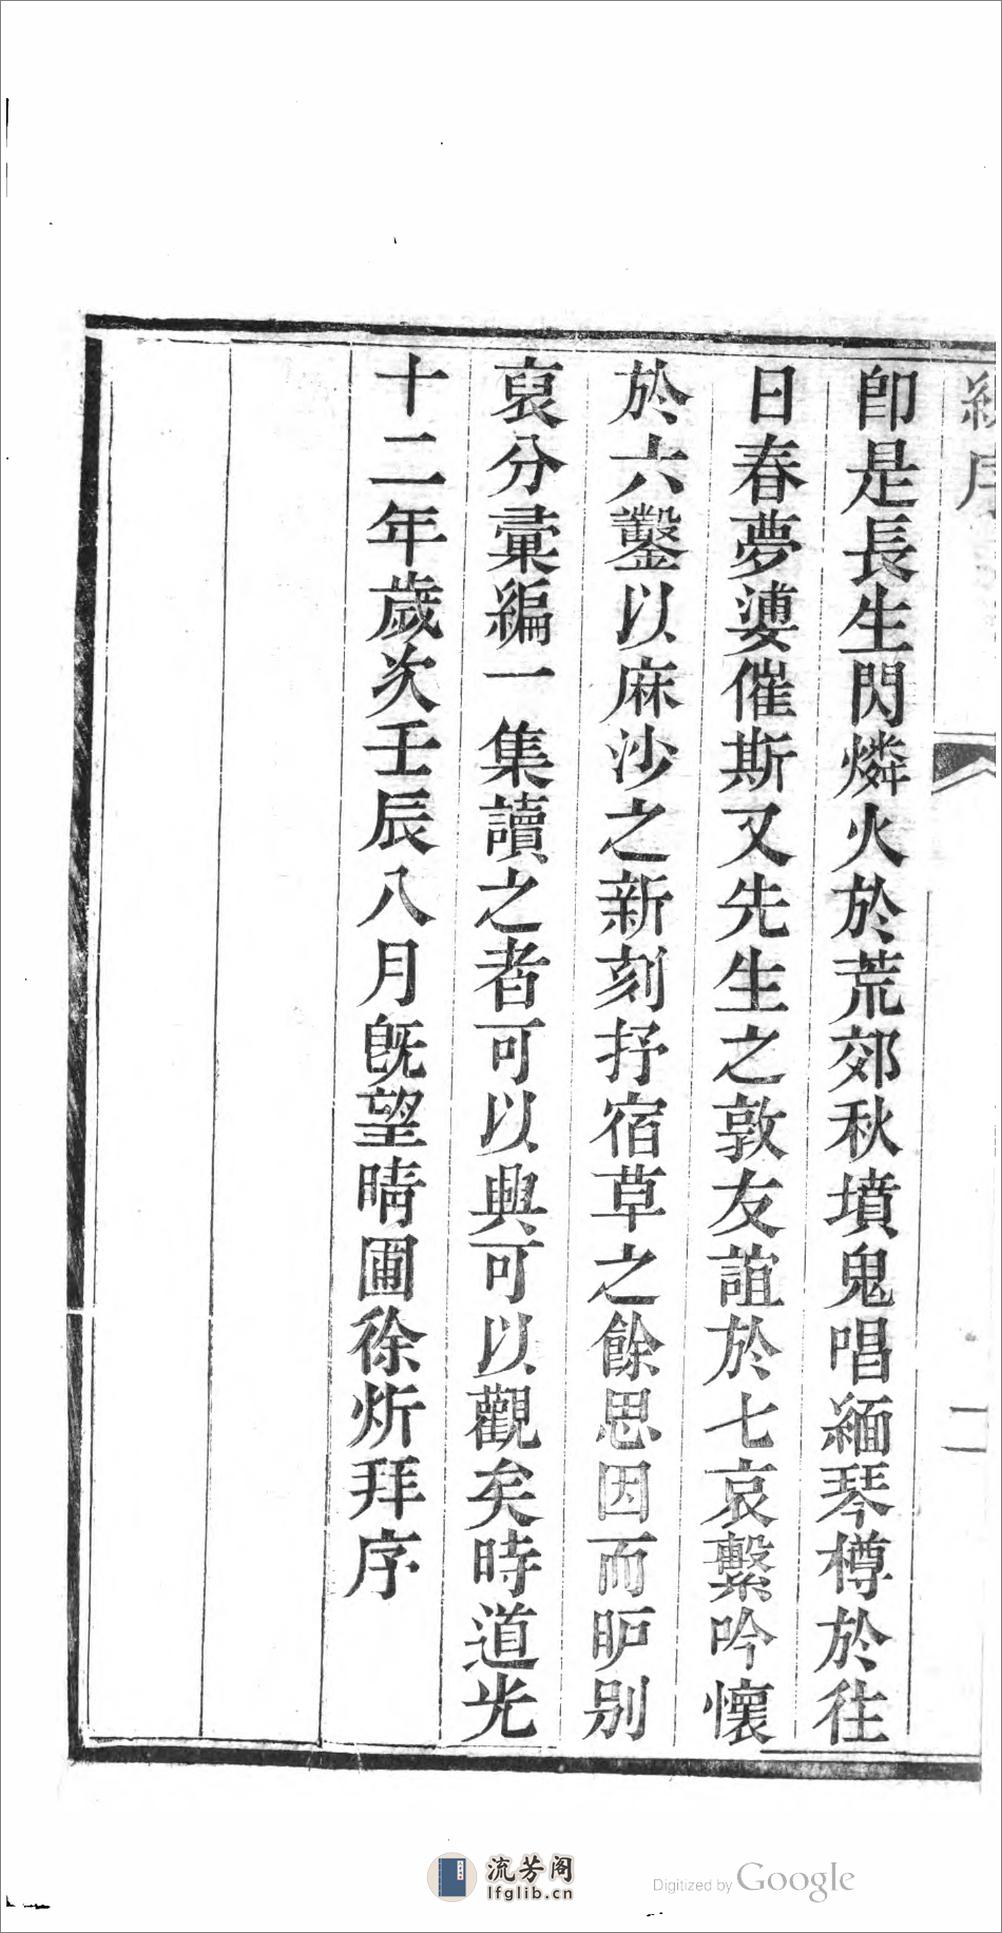 序
二
卽是長生閃燐火於荒郊秋墳鬼唱緬琴樽於往
日春夢婆催斯又先生之敦友誼於七哀繫吟懷
於六鑿以麻沙之新刻抒宿草之餘思因而昈別
裒分彙編一集讀之者可以興可以觀矣時道光
十二年歲次壬辰八月旣望晴圃徐炘拜序
流芳阁
lfglib.cn
Digitized by Google